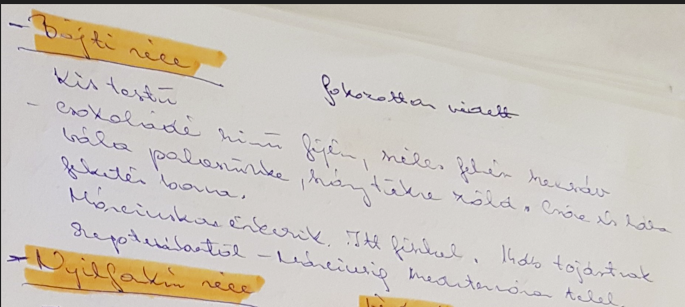 - Böjti réce
Kis testű fokozottan védett
- csokoládé színű fején, széles fehér szemsáv
háta palaszürke, szárnytükre zöld. Csőre és lába
fekete barna.
Márciusban érkezik. Itt fészkel. tojást rak
Szeptembertől - Márciusig mediterrán telel
- Nyílfarkú réce